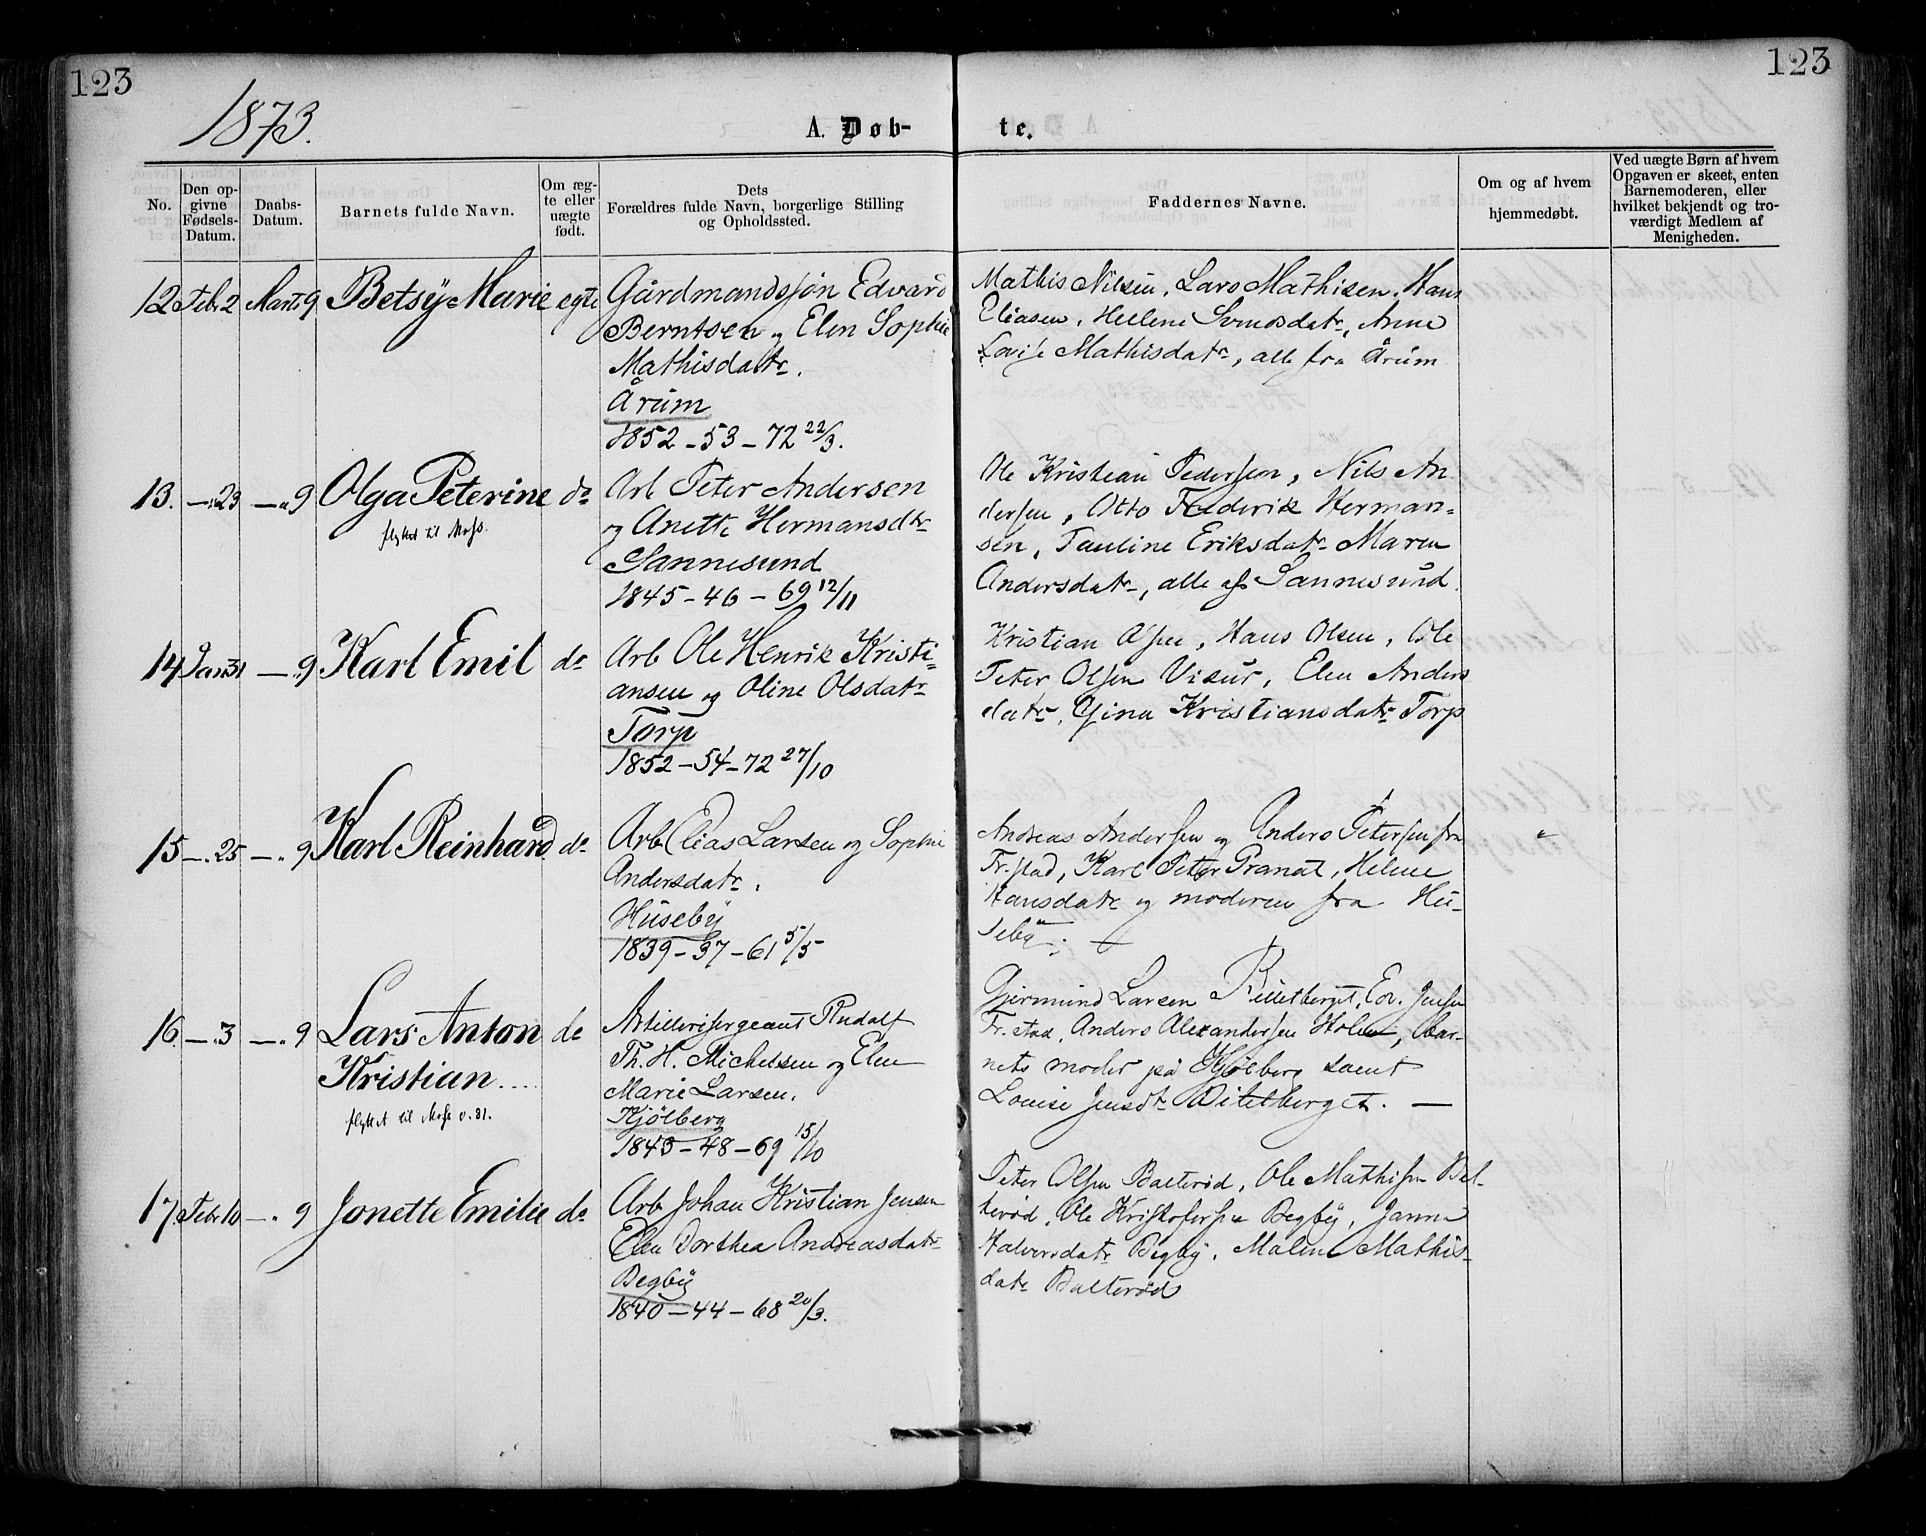 123
123
1873.
A. Døb-
te.
No.
Den op-
givne
Fødsels-
Datum.
Daabs-
Datum.
Barnets fulde Navn.
Om æg-
te eller
uægte
født.
Dets
Forældres fulde Navn, borgerlige Stilling
og Opholdssted.
Faddernes Navne.
Om og af hvem
hjemmedøbt.
Ved uægte Børn af hvem
Opgaven er skeet, enten
Barnemoderen, eller
hvilket bekjendt og tro-
værdigt Medlem af
Menigheden.
12 Febr. 2 Marts 9 Betsÿ Marie egte
Gårdmandssøn Edvard
Berntsen og Elen Sophie
Mathisdatr.
Årum
1852 - 53 - 72 22/3.
Mathis Nilsen, Lars Mathisen, Hans
Eliasen, Hellene Svensdatr, Anne
Lovise Mathisdatr, alle fra Årum
13. -"23 -"9 Olga Peterine do
flyttet til Moss.
Arb Peter Andersen
og Anette Hermansdtr
Sannesund
1845 - 46 - 69 12/11
Ole Kristian Pedersen, Nils An-
dersen, Otto Frederik Herman-
sen, Pauline Eriksdatr Maren
Andersdatr, alle af Sannesund.
14 Jan 31 -"9 Karl Emil do
Arb Ole Henrik Kristi-
ansen og Oline Olsdatr
Torp
1852 - 54 - 72 27/10
Kristian Olsen, Hans Olsen, Ole
Peter Olsen Visur, Elen Anders
datr, Gina Kristiansdatr Torp
15 -"25 -"9 Karl Reinhard do
Arb Elias Larsen og Sophie
Andersdatr.
Husebÿ
1839 - 37 - 61 5/5
Andreas Andersen og Anders Petersen fra
Fr.stad, Karl Peter Granat, Helene
Hansdatr og moderen fra Hu-
sebÿ. —
"
16 -"3 -"9 Lars Anton do
Kristian....
flyttet til Moss v. 31.
Artillerisergeant Rudolf
Th. H. Michelsen og Elen
Marie Larsen.
Kjölberg
1843 - 48 - 69 15/10
Gjermund Larsen Rilletberget, Edv. Jensen
Fr.stad, Anders Alexandersen Holen, Bar-
nets moder på Kjölberg samt
Louise Jensdtr Ritelberget. —
17 Febr 10 -"9 Jonette Emilie do
Arb Johan Kristian Jensen
Elen Dorthea Andreasdatr
Begbÿ
1840 - 44 - 68 20/3.
Peter Olsen Balterød, Ole Mathisen Bal-
terød, Ole Kristofersen Begbÿ, Janna
Halvorsdatr Begbÿ, Malene Mathis-
datr Balterød